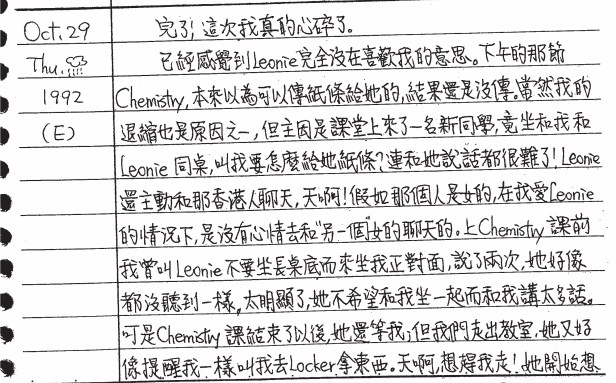 Oct. 29 完了，這次我真的心碎了。
Thu. 已經感覺到Leonie完全沒在喜歡我的意思。下午的那節
1992 Chemistry，本來以為可以傳紙條給她的，結果還是沒傳。當然我的
(E) 退縮也是原因之一，但主因是課堂上來了一名新同學，竟坐和我和
Leonie同桌，叫我要怎麼給她紙條？連和她說話都很難了！Leonie
還主動和那香港人聊天，天啊！假如那個人是女的，在我愛Leonie
的情況下，是沒有心情去和"另一個"女的聊天的。上Chemistry課前
我曾叫Leonie不要坐長桌底而來坐我正對面，說了兩次，她好像
都沒聽到一樣，太明顯了，她不希望和我坐一起而和我講太多話。
可是Chemistry課結束了以後，她還等我；但我們走出教室，她又好
像提醒我一樣叫我去Locker拿東西。天啊，想趕我走！她開始想